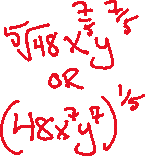 ⁵√48 x^7/5 y^7/5
OR
(48x⁷y⁷)^1/5